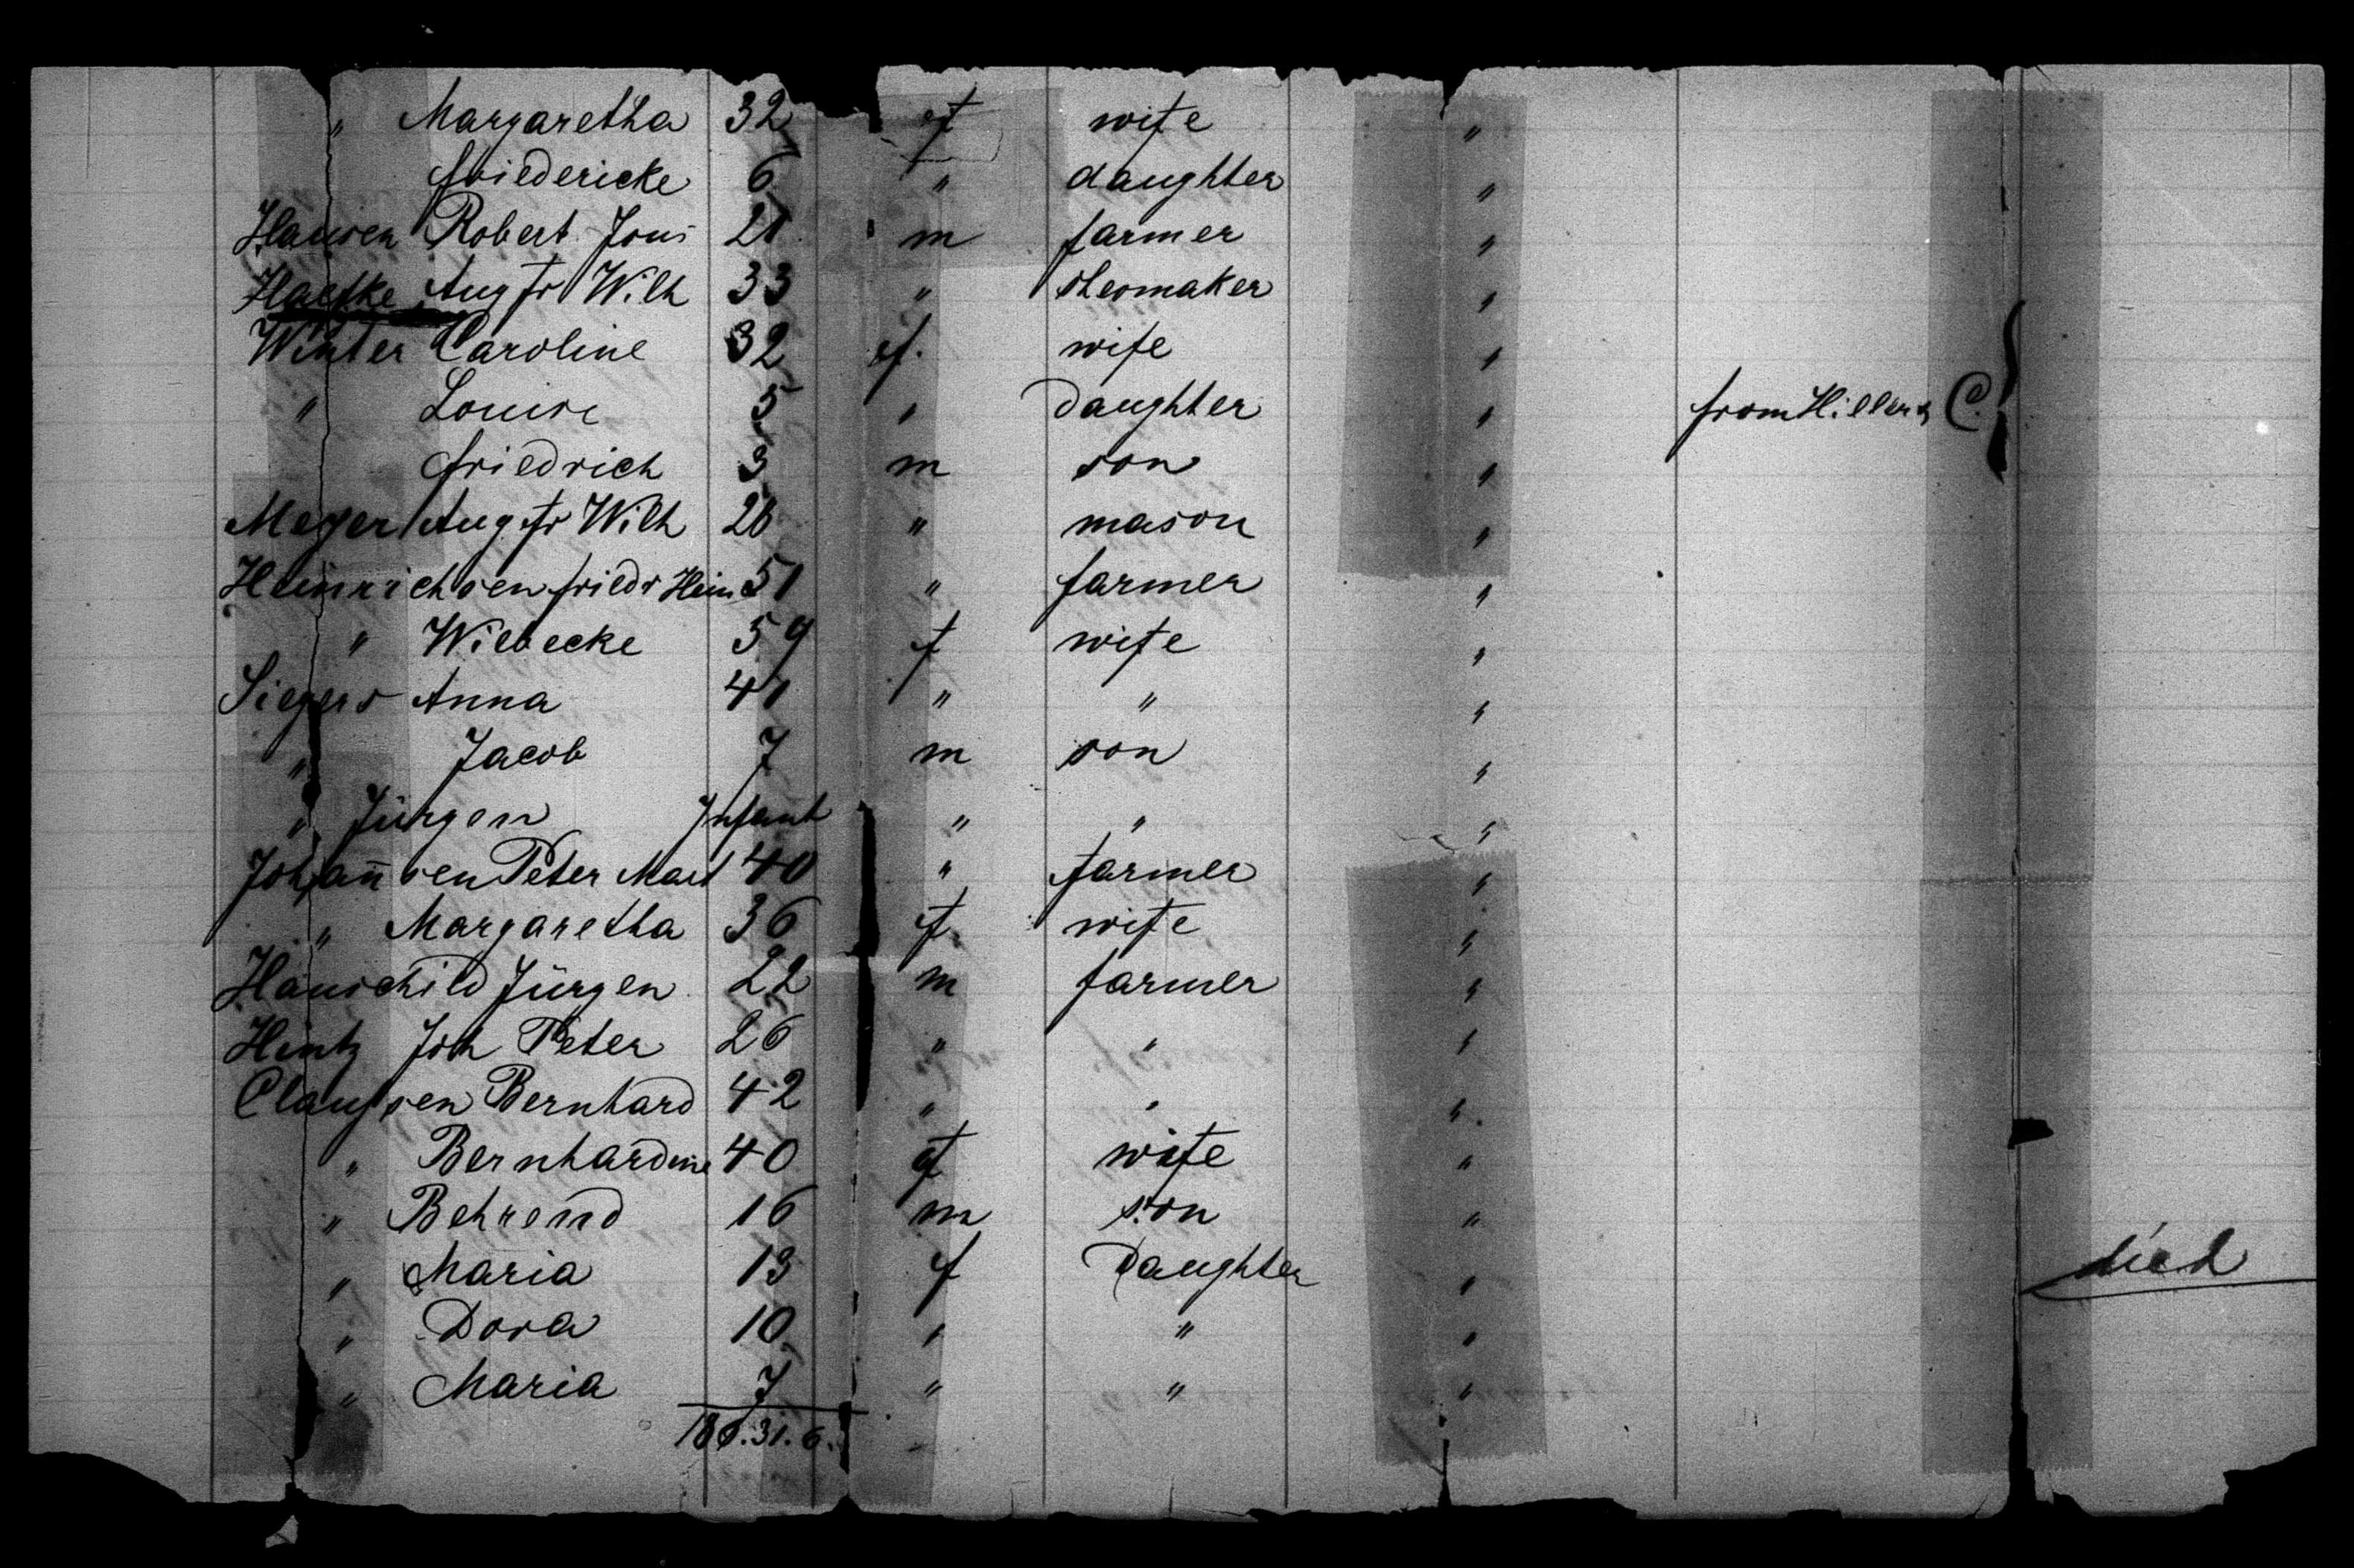 " Margaretha 32 f wife "
Friedericke 6 " daughter "
Hansen Robert Jons 21 m farmer "
Haefke Aug Fr Wilh 33 " shoemaker "
Winter Caroline 32 f. wife "
" Louise 5 " Daughter " from Hillers C.
Friedrich 3 m son "
Meyer Aug Fr Wilh 26 " mason "
Heinrichsen Friedr Hein 51 " farmer "
" Wiebecke 59 f wife "
Siegers Anna 41 " " "
" Jacob 7 m son "
" Jürgen Infant " " "
Johan̄sen Peter Mart 40 " farmer "
" Margaretha 36 f. wife "
Hauschild Jürgen 22 m farmer "
Hintz Joh Peter 26 " " "
Claussen Bernhard 42 " " "
" Bernhardine 40 f wife "
" Behrend 16 m son "
" Maria 13 f Daughter " died
" Dora 10 " " "
" Maria 7 " " "
186.31.6.